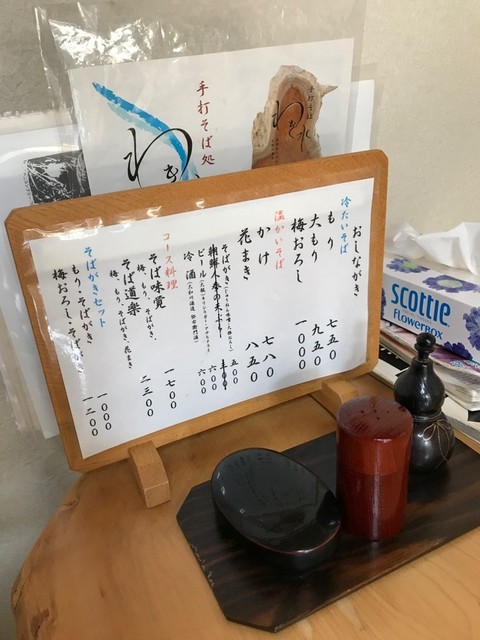 手打そば処
わも
手打そば
わも水
おしながき
冷たいそば
もり 七五〇
大もり 九五〇
梅おろし 一〇〇〇
温かいそば
かけ 七八〇
花まき 八五〇
そばがき 五〇〇
ビール 六〇〇
冷酒 六〇〇
コース料理
そば味覚 一七〇〇
梅、もり、そばがき
そば道楽 二三〇〇
梅、もり、そばがき、花まき
そばがきセット
もり・そばがき 一〇〇〇
梅おろし・そばがき 一二〇〇
Scottie
FLOWERBOX